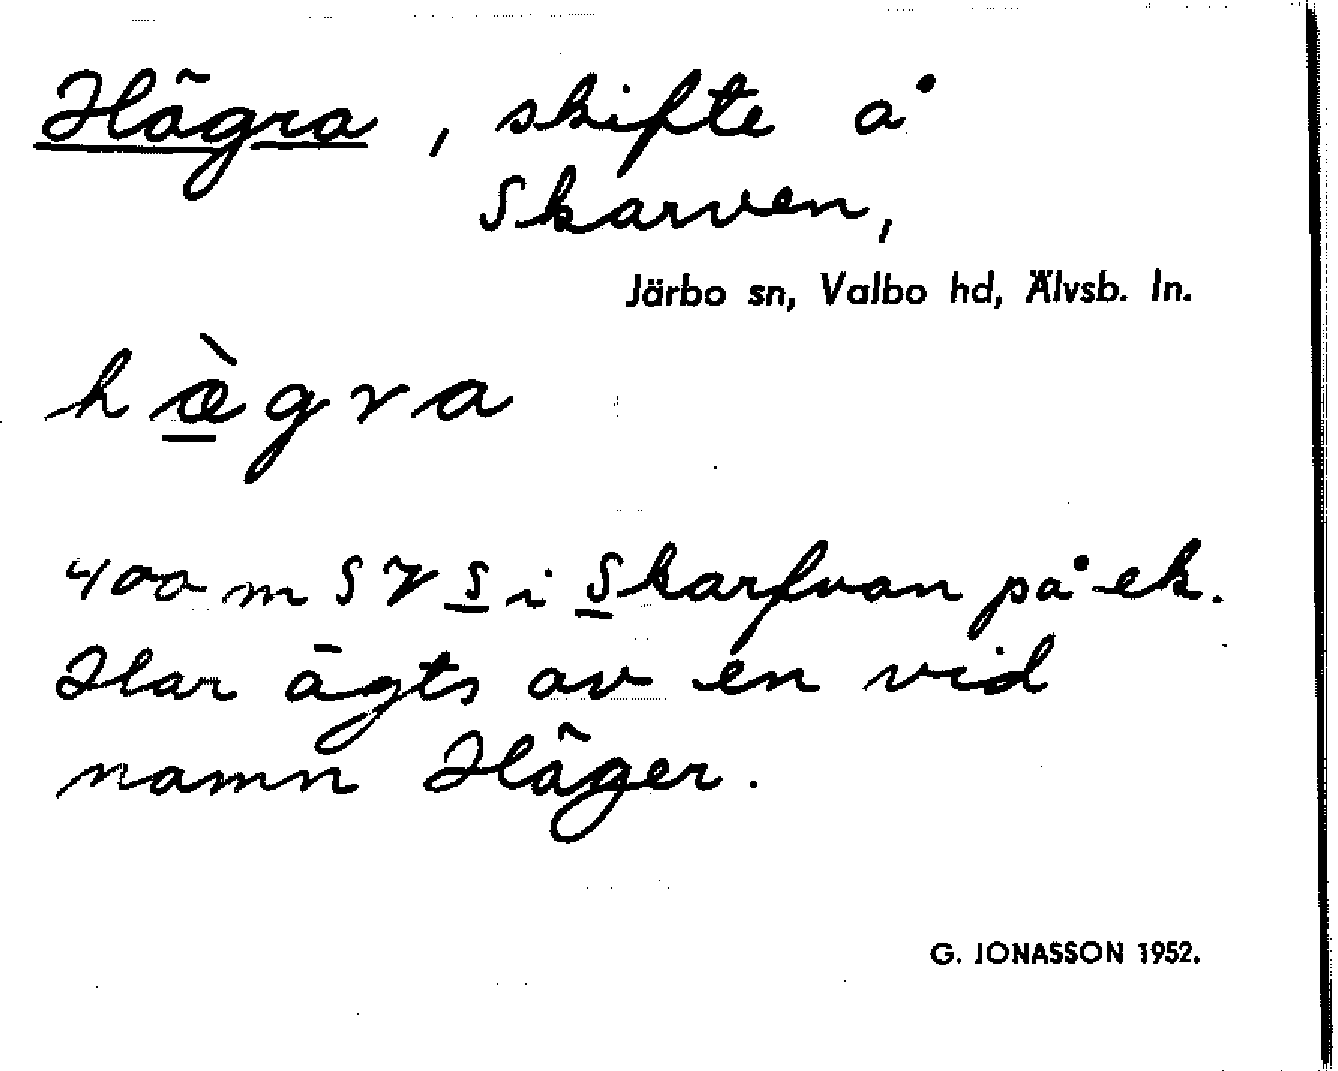 Hägra, skifte å
Skarven,
Järbo sn, Valbo hd, Älvsb. ln.
hæ̀gra
400 m SV S i Skarfvan på ek.
Har ägts av en vid
namn Häger.
G. JONASSON 1952.